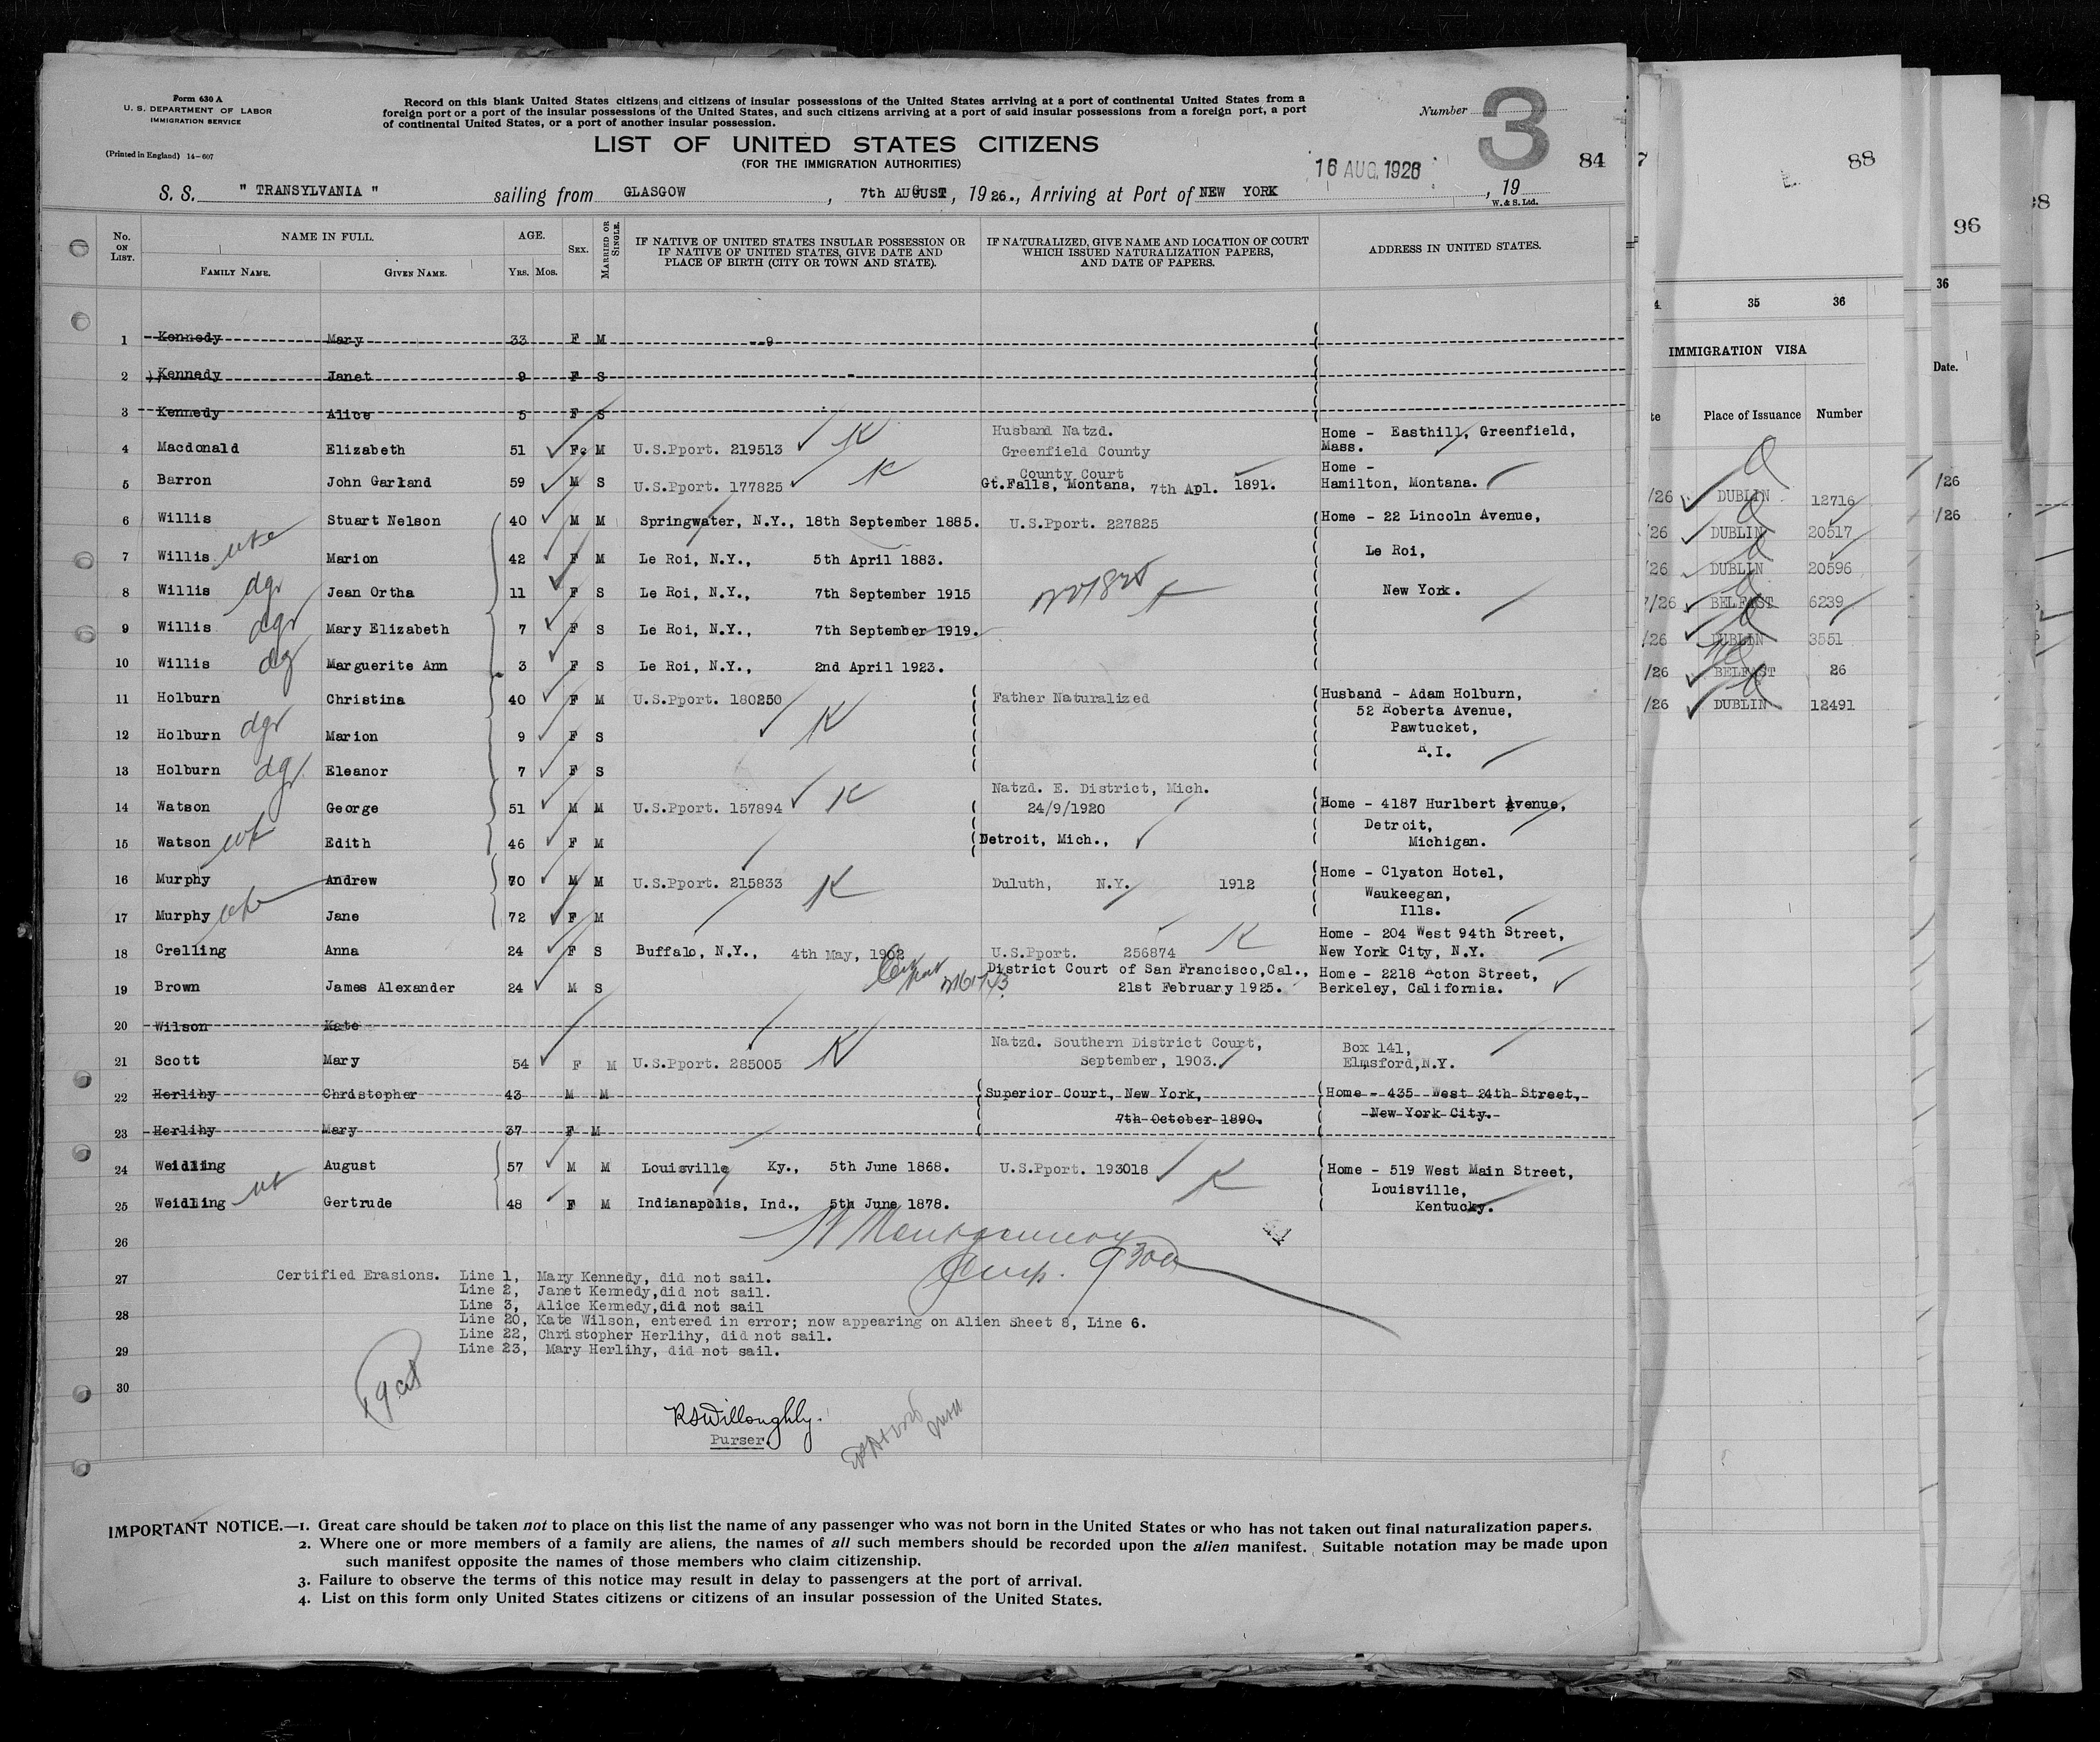 Form 630 A
U. S. DEPARTMENT OF LABOR
IMMIGRATION SERVICE
(Printed in England) 14-607
Record on this blank United States citizens and citizens of insular possessions of the United States arriving at a port of continental United States from a
foreign port or a port of the insular possessions of the United States, and such citizens arriving at a port of said insular possessions from a foreign port, a port
of continental United States, or a port of another insular possession.
Number 3
LIST OF UNITED STATES CITIZENS
(FOR THE IMMIGRATION AUTHORITIES)
16 AUG. 1926
84
S. S. " TRANSYLVANIA " sailing from GLASGOW, 7th AUGUST, 1926., Arriving at Port of NEW YORK, 19
W. & S. Ltd.
No. ON LIST. NAME IN FULL. AGE. SEX. MARRIED OR SINGLE. IF NATIVE OF UNITED STATES INSULAR POSSESSION OR IF NATIVE OF UNITED STATES, GIVE DATE AND PLACE OF BIRTH (CITY OR TOWN AND STATE). IF NATURALIZED, GIVE NAME AND LOCATION OF COURT WHICH ISSUED NATURALIZATION PAPERS, AND DATE OF PAPERS. ADDRESS IN UNITED STATES.
FAMILY NAME. GIVEN NAME. YRS. MOS.
1 Kennedy Mary 33 F M
2 Kennedy Janet 9 F S
3 Kennedy Alice 5 F S
4 Macdonald Elizabeth 51 Fe M U.S.Pport. 219513 K Husband Natzd. Greenfield County County Court Home - Easthill, Greenfield, Mass.
5 Barron John Garland 59 M S U.S.Pport. 177825 K Gt.Falls, Montana, 7th Apl. 1891. Home - Hamilton, Montana.
6 Willis Stuart Nelson 40 M M Springwater, N.Y., 18th September 1885. U.S.Pport. 227825 Home - 22 Lincoln Avenue,
7 Willis wfe Marion 42 F M Le Roi, N.Y., 5th April 1883. Le Roi,
8 Willis dgr Jean Ortha 11 F S Le Roi, N.Y., 7th September 1915 New York.
9 Willis dgr Mary Elizabeth 7 F S Le Roi, N.Y., 7th September 1919.
10 Willis dgr Marguerite Ann 3 F S Le Roi, N.Y., 2nd April 1923.
11 Holburn Christina 40 F M U.S.Pport. 180250 Father Naturalized Husband - Adam Holburn,
52 Roberta Avenue,
12 Holburn dgr Marion 9 F S K Pawtucket,
R.I.
13 Holburn dgr Eleanor 7 F S
14 Watson George 51 M M U.S.Pport. 157894 K Natzd. E. District, Mich. 24/9/1920 Home - 4187 Hurlbert Avenue,
Detroit,
15 Watson wf Edith 46 F M Detroit, Mich., Michigan.
16 Murphy Andrew 70 M M U.S.Pport. 215833 K Duluth, N.Y. 1912 Home - Clyaton Hotel,
Waukeegan,
17 Murphy wfe Jane 72 F M Ills.
18 Crelling Anna 24 F S Buffalo, N.Y., 4th May, 1902 U.S.Pport. 256874 K Home - 204 West 94th Street, New York City, N.Y.
19 Brown James Alexander 24 M S District Court of San Francisco,Cal., 21st February 1925. Home - 2218 Acton Street, Berkeley, California.
20 Wilson Kate
21 Scott Mary 54 F M U.S.Pport. 285005 K Natzd. Southern District Court, September, 1903. Box 141, Elmsford,N.Y.
22 Herlihy Christopher 43 M M Superior Court, New York, Home - 435 West 24th Street,
7th October 1890. New York City.
23 Herlihy Mary 37 F M
24 Weidling August 57 M M Louisville Ky., 5th June 1868. U.S.Pport. 193018 K Home - 519 West Main Street,
Louisville,
25 Weidling Gertrude 48 F M Indianapolis, Ind., 5th June 1878. Kentucky.
26
27 Certified Erasions. Line 1, Mary Kennedy, did not sail.
Line 2, Janet Kennedy,did not sail.
Line 3, Alice Kennedy,did not sail
28 Line 20, Kate Wilson, entered in error; now appearing on Alien Sheet 8, Line 6.
Line 22, Christopher Herlihy, did not sail.
29 Line 23, Mary Herlihy, did not sail.
30
Montgomery
Insp.
R S Willoughby.
Purser.
IMPORTANT NOTICE.—1. Great care should be taken not to place on this list the name of any passenger who was not born in the United States or who has not taken out final naturalization papers.
2. Where one or more members of a family are aliens, the names of all such members should be recorded upon the alien manifest. Suitable notation may be made upon
such manifest opposite the names of those members who claim citizenship.
3. Failure to observe the terms of this notice may result in delay to passengers at the port of arrival.
4. List on this form only United States citizens or citizens of an insular possession of the United States.
88
35 36
IMMIGRATION VISA
Place of Issuance Number
/26 DUBLIN 12716
/26 DUBLIN 20517
/26 DUBLIN 20596
/26 BELFAST 6239
/26 DUBLIN 3551
/26 BELFAST 26
/26 DUBLIN 12491
96
36
Date.
/26
/26